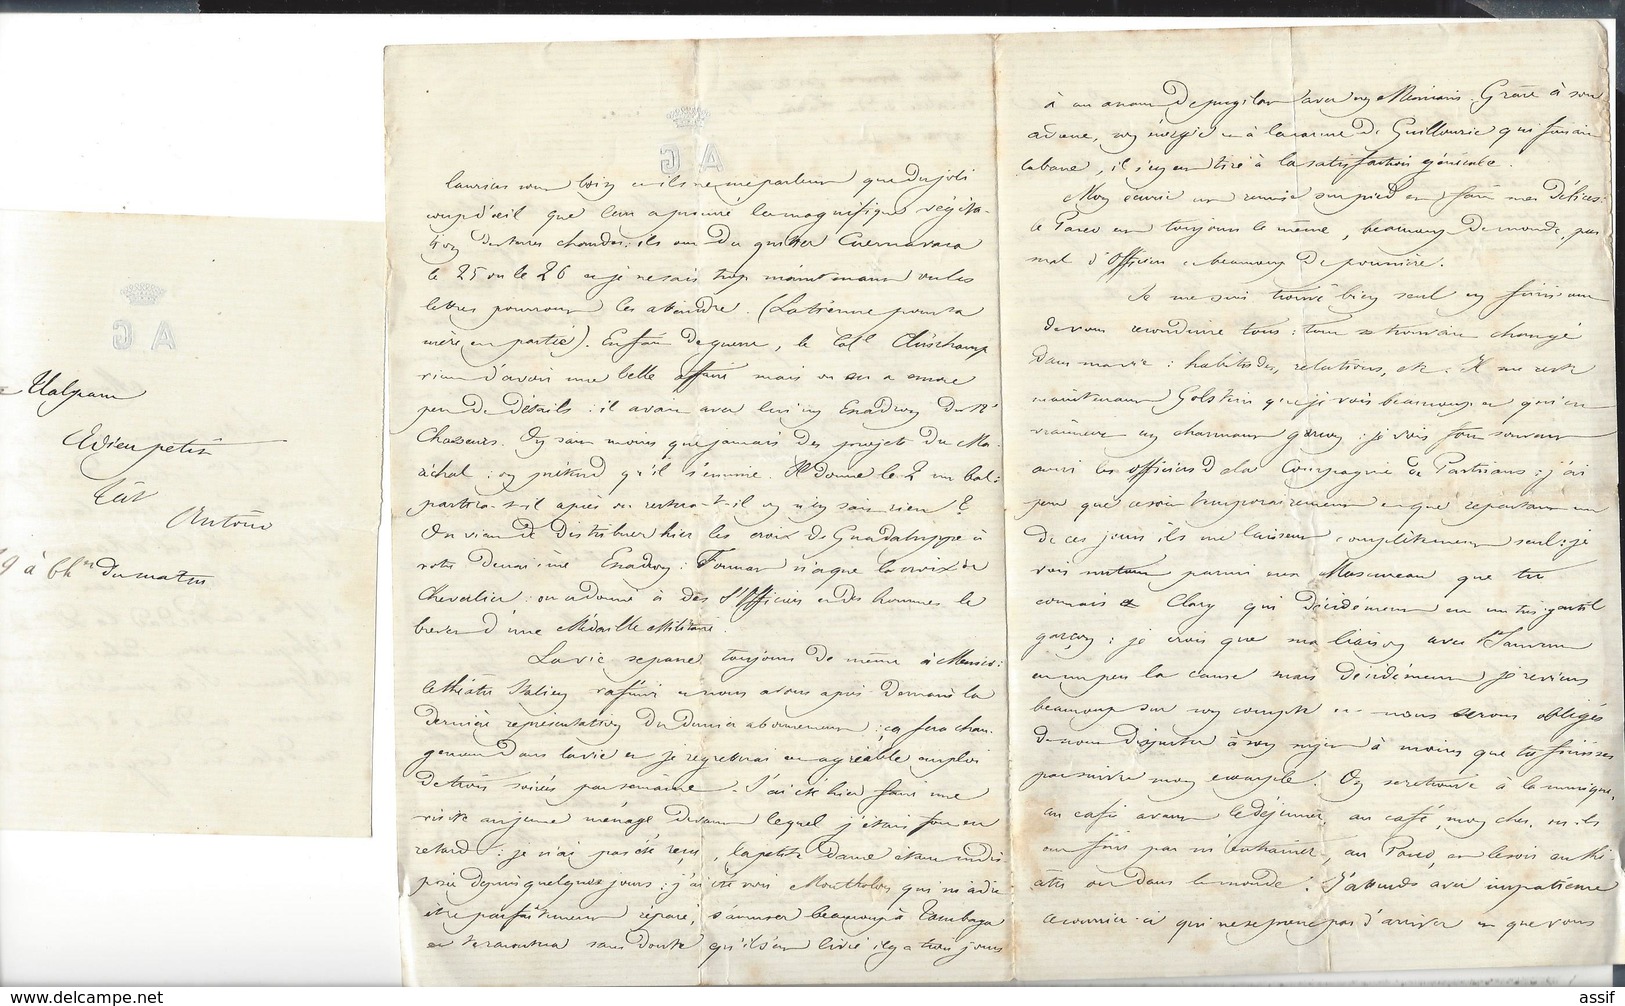 A G
Adieu petit
Antoine
9 à 6h du matin
A G
coup d'œil que leur a procuré la magnifique végéta-
tion des terres chaudes : ils ont dû quitter Cuernavaca
le 25 ou le 26 et je ne sais trop maintenant où les
lettres pourront les atteindre. (La tienne pour sa
mère en partie). En fait de guerre, le Col
vient d'avoir une belle affaire mais on en a encore
peu de détails : il avait avec lui un Escadron du
Chasseurs. On sait moins que jamais des projets du Ma-
réchal : on prétend qu'il s'ennuie. Il donne le 2 un bal :
partira-t-il après ou restera-t-il on n'en sait rien
On vient de distribuer hier les croix de Guadaluppe à
notre deuxième Escadron : a que la croix de
Chevalier : on a donné à des S/Officiers et des hommes le
brevet d'une Médaille Militaire.
La vie se passe toujours de même à Mexico :
le théâtre Italien et nous avons après demain la
dernière représentation du dernier abonnement : ça fera chan-
gement dans la vie et je regretterai cet agréable emploi
de trois soirées par semaine. J'ai été hier faire une
visite au jeune ménage devant lequel j'étais fort en
retard : je n'ai pas été reçu, la petite Dame étant indis-
posée depuis quelques jours : j'ai été voir Montholon qui m'a dit
être parfaitement réparé, s'amuser beaucoup à
et sans doute qu'ils ont livré il y a trois jours
à son
adresse, son énergie et à la canne de qui faisait
cabane, il s'en est tiré à la satisfaction générale.
Mon écurie est remise sur pied et fait mes délices :
le Paseo est toujours le même, beaucoup de monde, pas
mal d'Officiers et beaucoup de poussière.
Je me suis trouvé bien seul en finissant
de vous reconduire tous : tout se trouvait changé
dans ma vie : habitudes, relations, etc. Il me reste
maintenant que je vois beaucoup et qui est
vraiment un charmant garçon : je vois fort souvent
aussi les officiers de la Compagnie de Partisans : j'ai
peur que ce soit temporairement et que repartant un
de ces jours ils me laissent complètement seul : je
vois surtout parmi eux que tu
connais et Clary qui décidément est un très gentil
garçon : je crois que ma liaison avec
en est un peu la cause mais décidément je reviens
beaucoup sur son compte et nous serons obligés
de nous disputer à son sujet à moins que tu finisses
par suivre mon exemple. On se retrouve à la musique,
au café avant le déjeuner, au café, mon cher, où ils
ont fini par m'entraîner, au Paseo, et le soir au thé-
âtre ou dans le monde. J'attends avec impatience
ce courrier-ci qui ne se presse pas d'arriver et que vous
assif